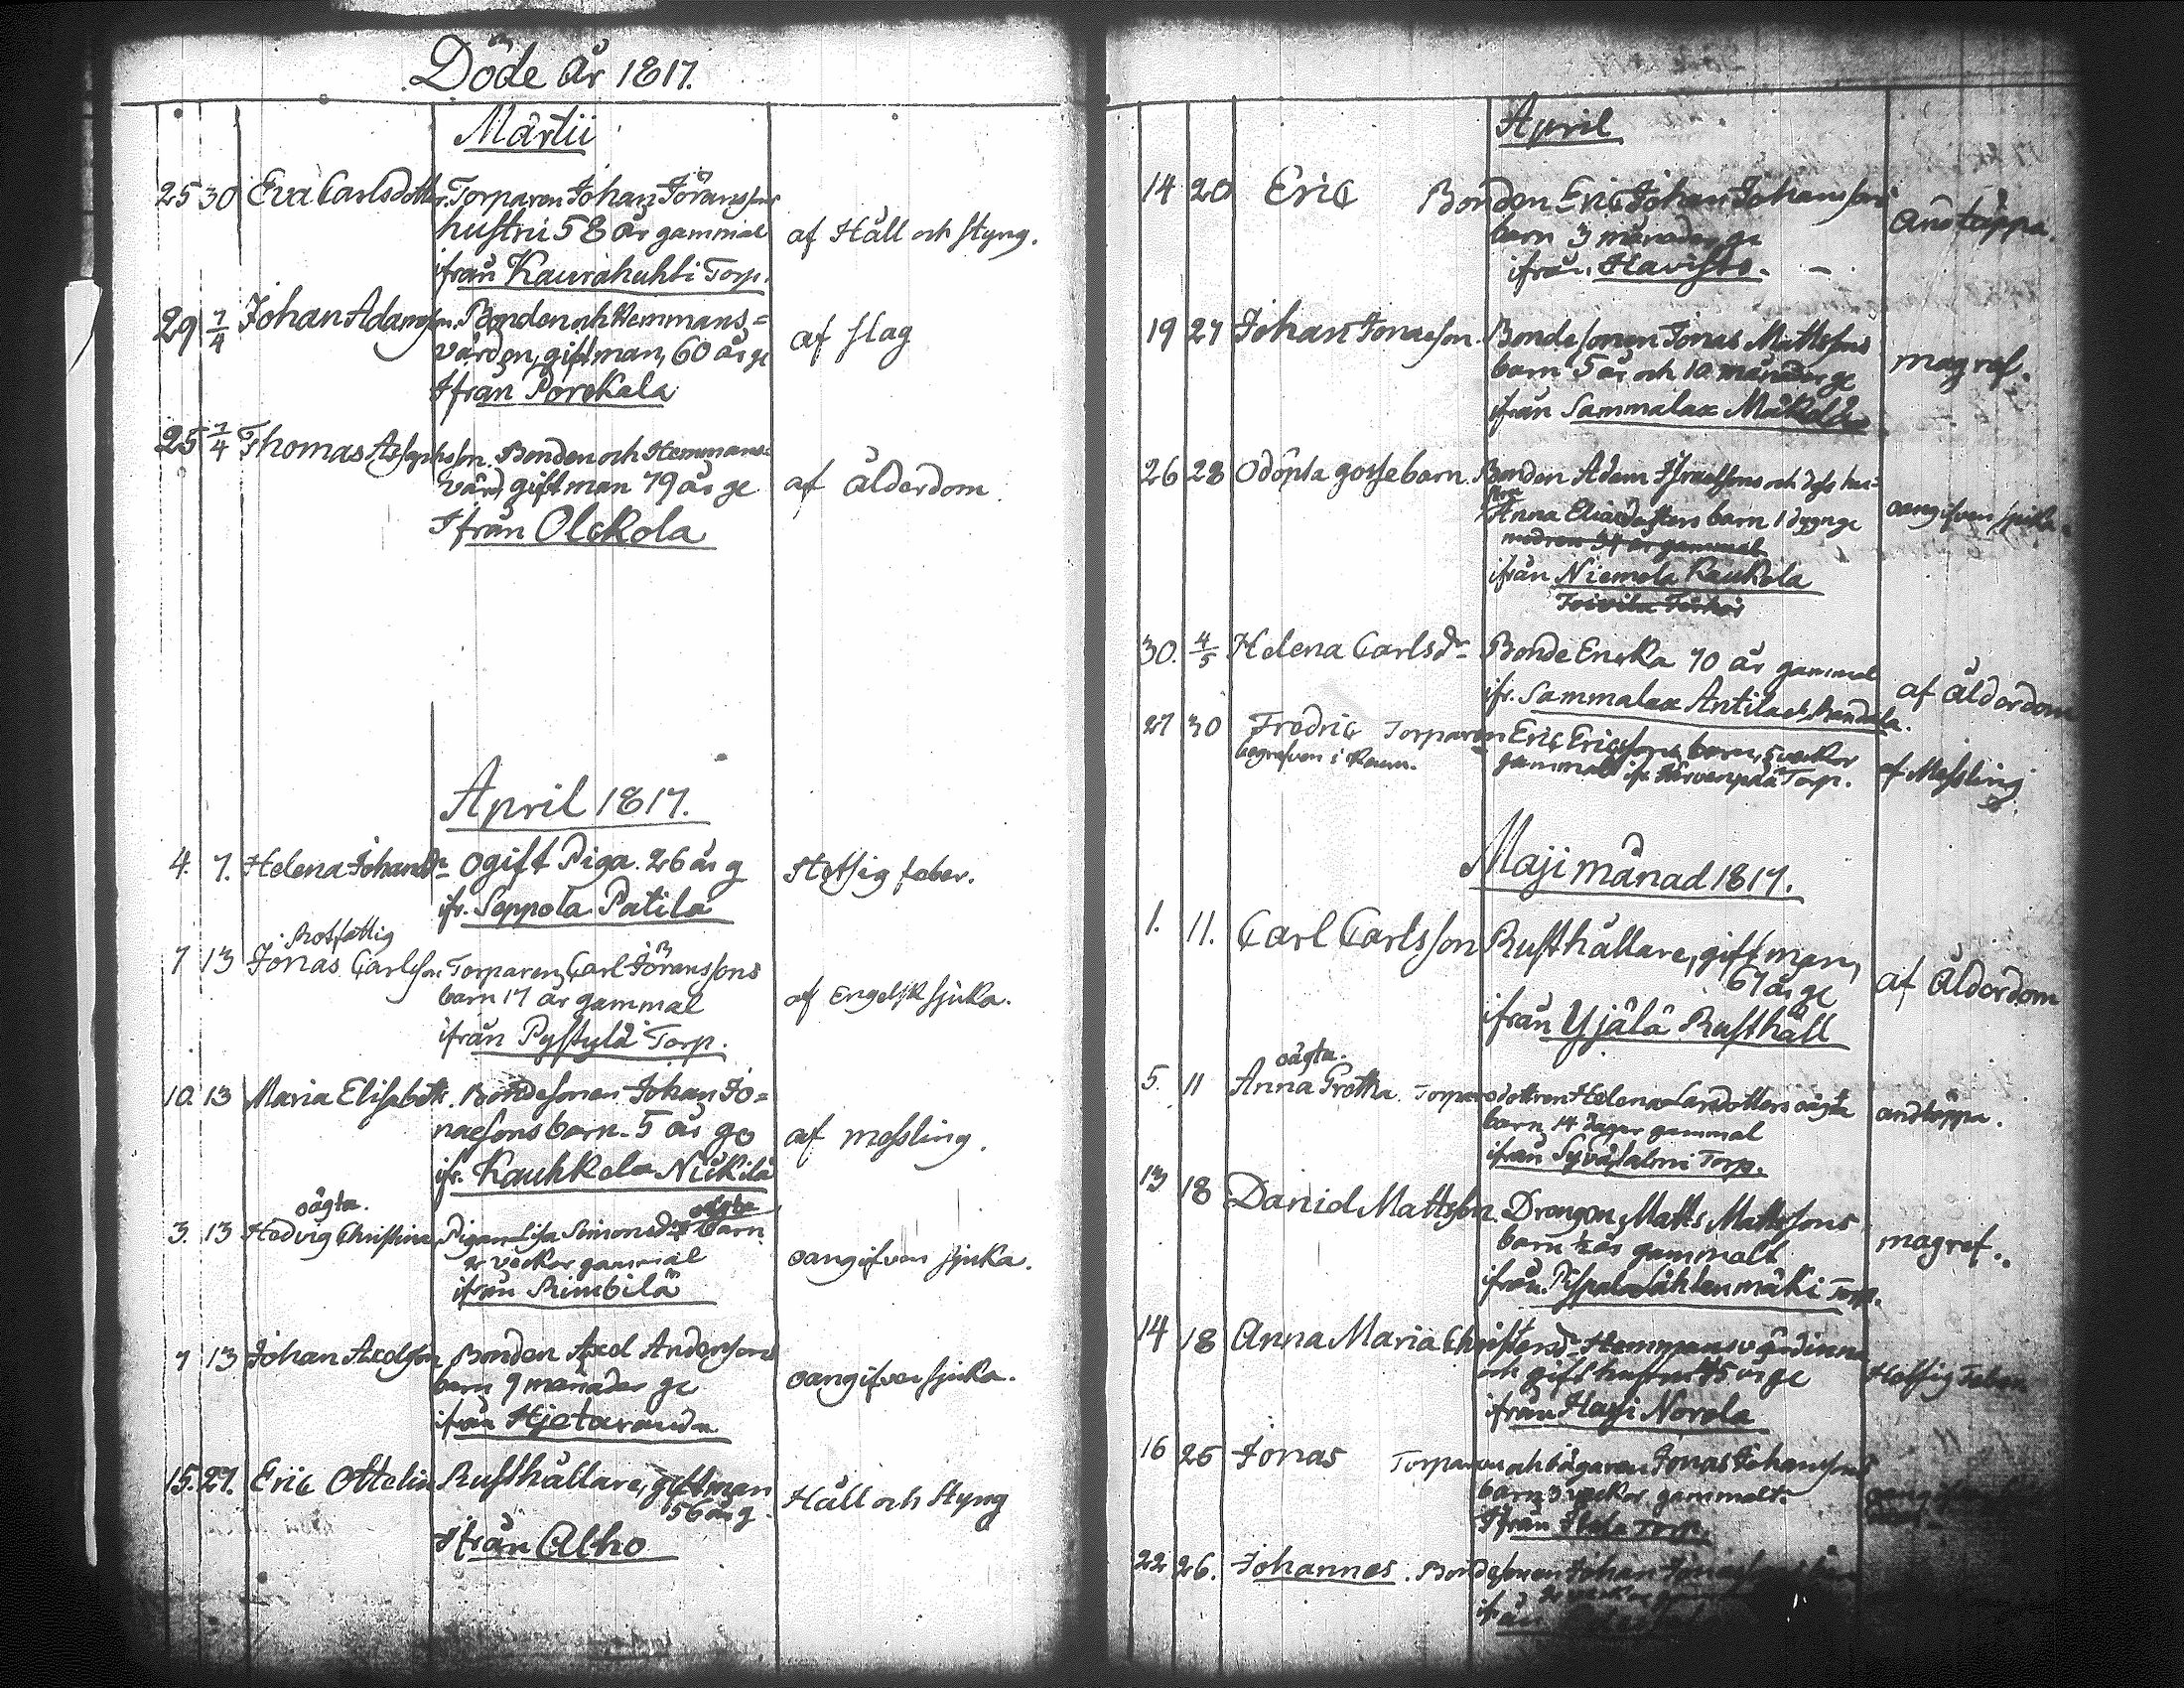 Döde år 1817.
Martii
25 30 Eva Carlsdotter. Torparen Johan Jöranssons
hustru 58 år gammal
ifrån Kaurahuhti Torp.
af Håll och styng.
29 1/4 Johan Adamsson. Bonden och Hemmans=
värden, gift man, 60 år ge
Ifrån Porckala
af slag
25 1/4 Thomas Bonden och Hemmans=
värd gift man 79 år ge
Ifrån Olckola
af ålderdom.
April 1817.
4. 7. Helena Johansdr ogift Piga. 26 år g
ifr. Seppola Patila
Hetsig feber.
Rotfattig
7 13 Jonas Carlsson Torparen Carl Jöranssons
barn 17 år gammal
ifrån Pystylä Torp.
af Engelsk sjuka.
10. 13 Maria Elisabeth. Bondesonen Johan Jo=
naesons barn. 5 år ge
ifr. Kauhkela Nickilä
af messling.
oägta.
oägta
3. 13 Hedvig Christina Pigan Lisa Simonsdrs barn.
veckor gammal
ifrån
oangifven sjuka.
7 13 Johan Axelsson Bonden Axel Anderssons
barn 9 månader ge
ifrån Hjetaranda
oangifven sjuka.
15. 27. Eric Ottelin Rusthållare, gift man
56 år g.
Ifrån Alho
Håll och Styng
April
14 20 Eric Bonden Eric Johan Johanssons
barn 3 månader ge
ifrån Havisto. -
andtäppa.
19 27 Johan Jonaeson. Bondesonen Jonas Mattssons
barn 5 år och 10 månader ge
ifrån Sammalax Mäkelä
magref.
26 28 Odöpta gossebarn. Bonden Adam Israelssons och dess hu=
stru
Anna Eliaedotters barn 1 dygn ge
modren 34 år gammal
ifrån Niemela Kaukola
oangifven sjuka.
30. 4/5 Helena Carlsdr Bonde Encka 70 år gammal
ifr. Sammalax Antila
af ålderdom
27 30 Fredric Torparen Eric Ericssons barn, 5 veckor
begrafven i Raum. gammal ifr. Järvenpää Torp.
af Messling
Maji månad 1817.
1. 11. Carl Carlsson Rusthållare, gift man,
67 år ge
ifrån Yjälä Rusthåll
af ålderdom
oägta.
5. 11 Anna Gretha Torparedottren Helena Larsdotters oägta
barn 14 dagar gammal
ifrån Syväsalmi Torp.
andtäppa.
13 18 Daniel Mattsson. Drengen Matts Mattssons
barn ½ år gammalt
ifrån Torp.
magref.
14 18 Anna Maria Christersdr Hemmansvärdinna
och gift hustru 45 år ge
ifrån Norola
Hetsig Feber
16 25 Jonas Torparen och Jonas Johanssons
barn 3 veckor gammalt.
Ifrån Torp.
22 26. Johannes. Bondesonen Johan
ifrån